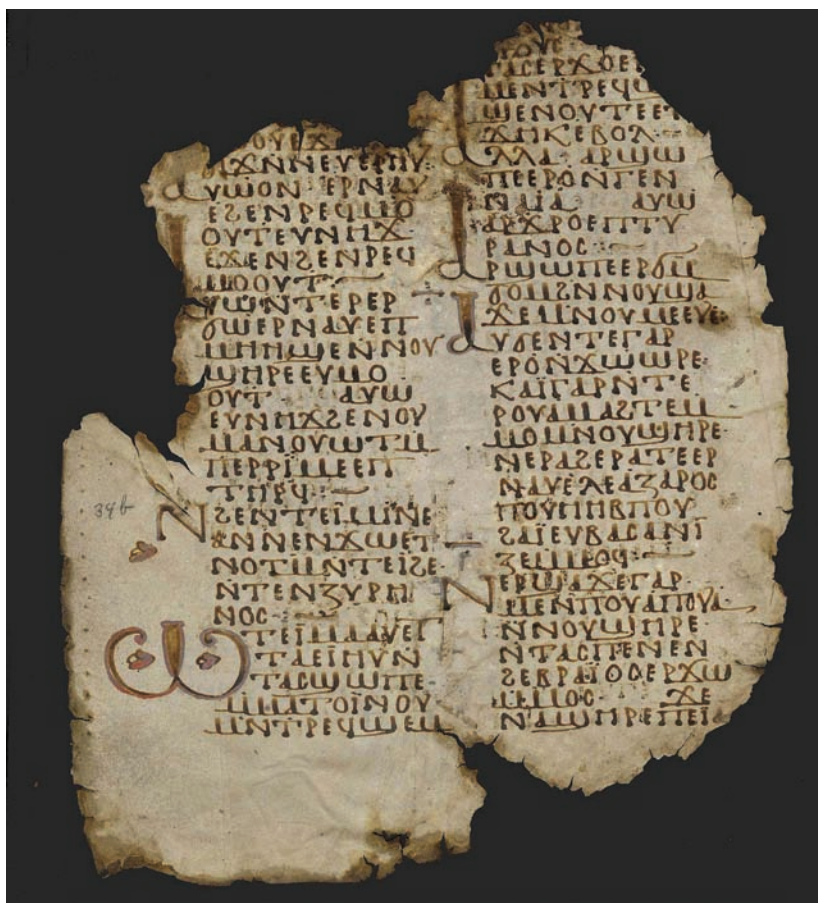 ⲟⲩⲉϫ
ϩⲓϫⲛⲛⲉⲩⲉⲣⲏⲩ·
ⲁⲩⲱⲟⲛ ⲉⲣⲛⲁⲩ
ⲉϩⲉⲛⲣⲉϥⲙⲟ
ⲟⲩⲧⲉⲩⲛⲏϫ·
ⲉϫⲉⲛϩⲉⲛⲣⲉϥ
ⲙⲟⲟⲩⲧ·
ⲁⲩⲱⲛⲧⲉⲣⲉⲣ
ϭⲱⲉⲣⲛⲁⲩⲉⲡ
ⲙⲏⲏϣⲉⲛⲛⲟⲩ
ϣⲏⲣⲉⲉⲩⲙⲟ
ⲟⲩⲧ· ⲁⲩⲱ
ⲉⲩⲛⲏϫϩⲉⲛⲟⲩ
ⲙⲁⲛⲟⲩⲱⲧⲙ
ⲡⲉⲣⲣⲓ̈ⲙⲉⲉⲡ
ⲧⲏⲣϥ·
ⲛϩⲉⲛⲧⲉⲓ̈ⲙⲓⲛⲉ
ⲁⲛⲛⲉⲛϫⲱⲉⲧ
ⲛⲟⲧⲙⲛⲧⲉⲓ̈ϩⲉ·
ⲛⲧⲉⲛⲍⲩⲣⲏ
ⲛⲟⲥ·
ⲱⲧⲉⲓ̈ⲙⲁⲁⲩⲉⲧ
ⲧⲁⲉⲓⲏⲩⲛ
ⲧⲁⲥϣⲱⲡⲉ·
ⲙⲙⲁⲧⲟⲓ̈ⲛⲟⲩ
ⲙⲛⲧⲣⲉϥϣⲉⲙ
ⲧⲁⲥⲉⲣϫⲟⲉ
ⲙⲉⲛⲧⲣⲉϥϣ
ϣⲉⲛⲟⲩⲧⲉⲉⲧ
ϫⲏⲕⲉⲃⲟⲗ·
ⲁⲗⲗⲁ ⲁⲣϣⲱ
ⲡⲉⲉⲣⲟⲛⲅⲉⲛ
ⲛⲁⲓⲁ· ⲁⲩⲱ
ⲁⲣϫⲣⲟⲉⲡⲧⲩ
ⲣⲁⲛⲟⲥ·
ⲁⲣϣⲱⲡⲉⲉⲣϭⲙ
ϭⲟⲙϩⲛⲛⲟⲩϣⲁ
ϫⲉⲙⲛⲟⲩⲙⲉⲉⲩⲉ·
ⲁⲩϭⲉⲛⲧⲉⲅⲁⲣ
ⲉⲣⲟⲛϫⲱⲱⲣⲉ·
ⲕⲁⲓ̈ⲅⲁⲣⲛⲧⲉ
ⲣⲟⲩⲁⲙⲁϩⲧⲉⲙ
ⲙⲟⲙⲛⲟⲩϣⲏⲣⲉ·
ⲛⲉⲣⲁϩⲉⲣⲁⲧⲉⲉⲣ
ⲛⲁⲩⲉⲗⲉⲁⲍⲁⲣⲟⲥ
ⲡⲟⲩⲏⲏⲃⲡⲟⲩ
ϩⲁⲓ̈ⲉⲩⲃⲁⲥⲁⲛⲓ
ⲍⲉⲙⲙⲟϥ·
ⲛⲉⲣϣⲁϫⲉⲅⲁⲣ·
ⲙⲉⲛⲡⲟⲩⲁⲡⲟⲩⲁ
ⲛⲛⲟⲩϣⲏⲣⲉ·
ⲛⲧⲁⲥⲡⲉⲛⲉⲛ
ϩⲉⲃⲣⲁⲓ̈ⲟⲥⲉⲣϫⲱ
ⲙⲙⲟⲥ· ϫⲉ
ⲛⲁϣⲏⲣⲉⲡⲉⲓ̈ⲁ